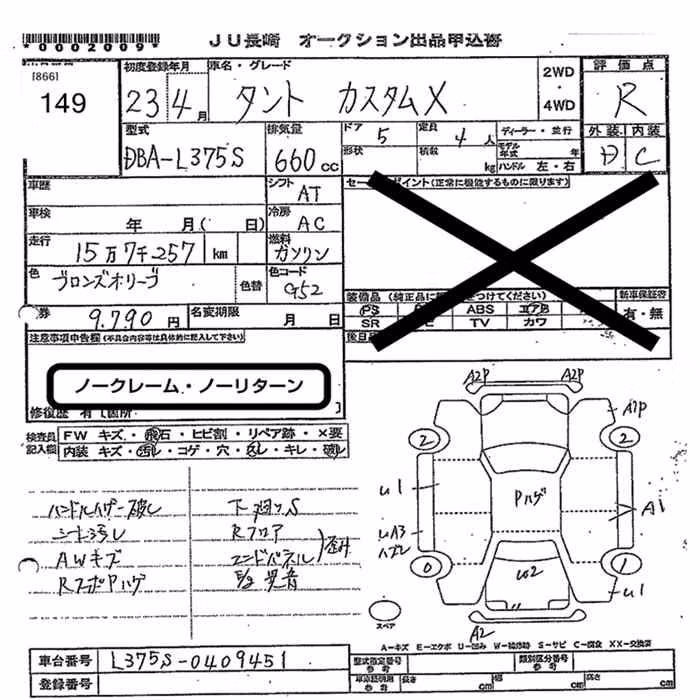 *0002009*
JU長崎 オークション出品申込書
[866]
149
初度登録年月
23年4月
車名・グレード
タント カスタムX
2WD
・
4WD
評価点
R
外装 内装
D C
型式
DBA-L375S
排気量
660cc
ドア
5
形状
定員
4人
積載
kg
ディーラー・並行
モデル年式 年
ハンドル 左・右
車歴
シフト
AT
車検
年 月( 日)
冷房
AC
走行
15万7千257 km
燃料
ガソリン
色
ブロンズオリーブ
色替
色コード
G52
券
9.790円
名変期限
月 日
セールスポイント(正常に機能するものに限ります)
装備品(純正品に をつけてください)
PS ABS エアB
SR TV カワ
新車保証書
有・無
後日
注意事項申告欄(不具合内容等は具体的に記入して下さい)
ノークレーム・ノーリターン
修復歴 有 [箇所 ]
検査員記入欄
FW キズ・飛石・ヒビ割・リペア跡・×要
内装 キズ・汚レ・コゲ・穴・スレ・キレ・破レ
ハンドルカバー破レ
シート汚レ
AWキズ
下廻りS
Rフロア
エンドパネル
歪み
E/g異音
A2P A2P
A1P
2 2
U1
Pハゲ
A1
UA3
ハズレ
0 1
U2
U1
A2
スペア
A-キズ E-エクボ U-凹み W-補修跡 S-サビ C-腐食 XX-交換済
車台番号
L375S-0409451
登録番号
型式指定番号
参考
類別区分番号
参考
車庫証明用
参考
長さ cm
幅 cm
高さ cm